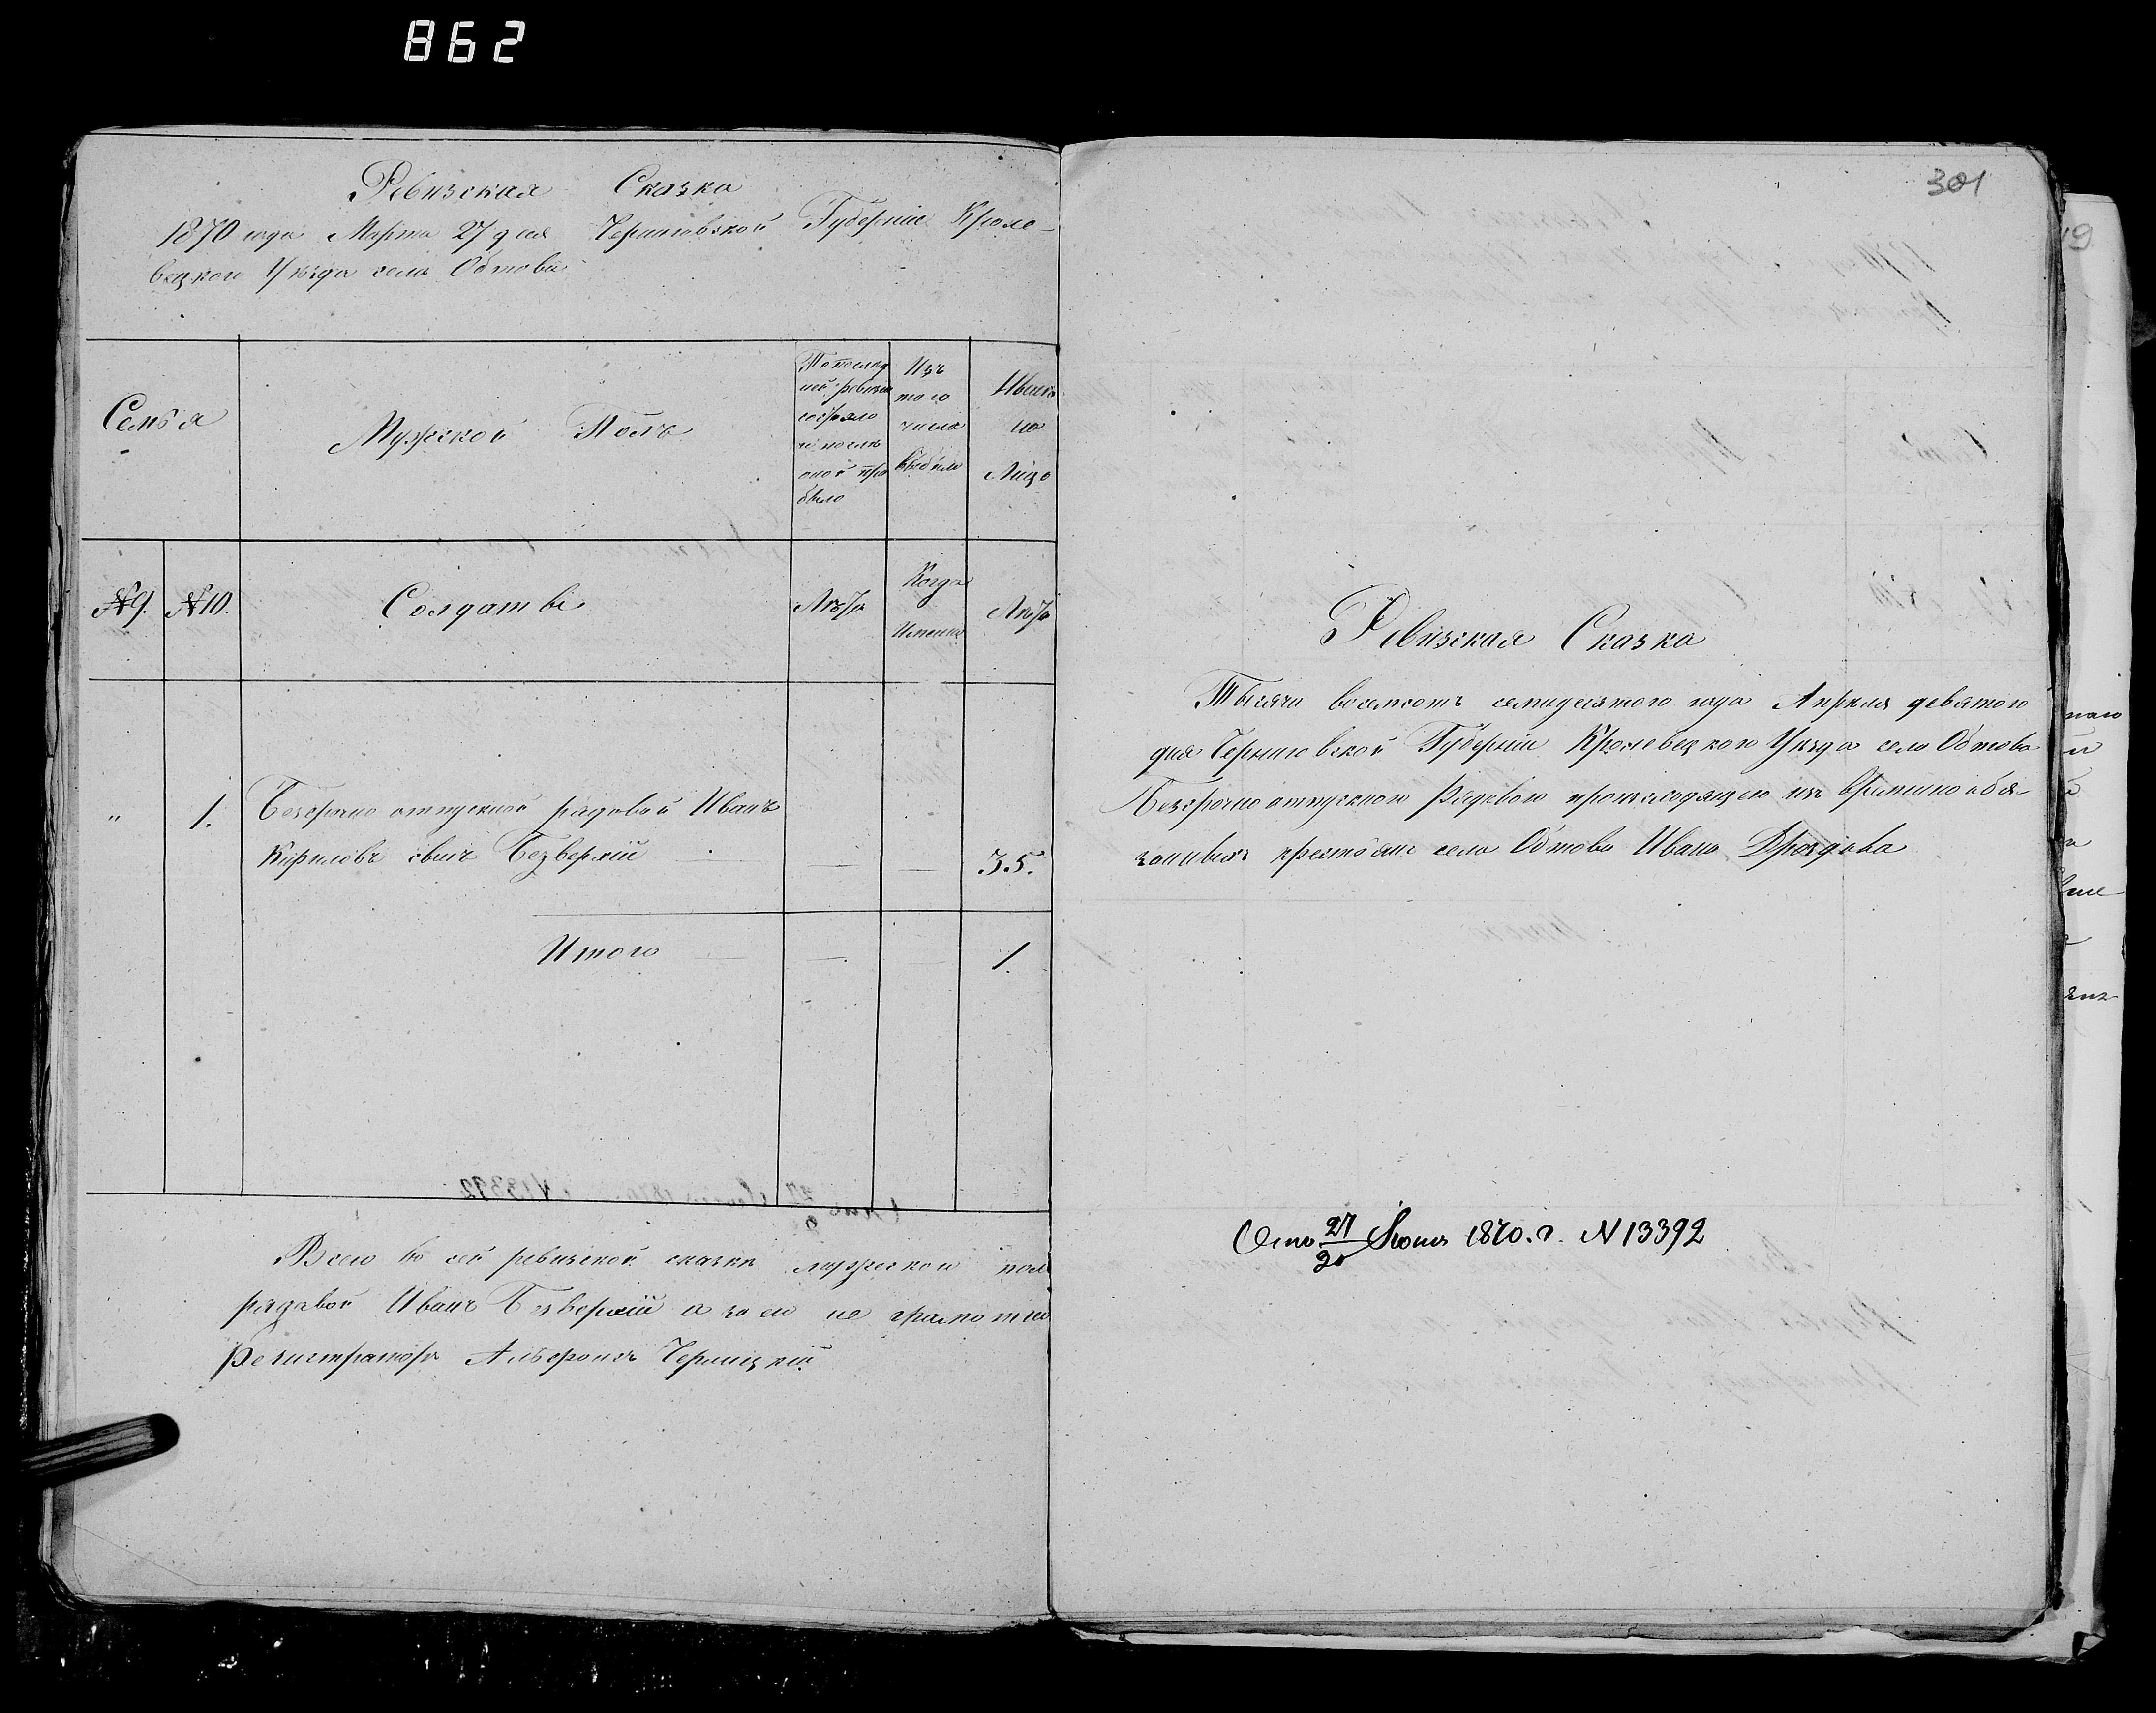 862
Ревизская Сказка
1870 года Марта 27 дня Черниговской Губерніи Кроле-
вецкого Уѣзда села Обтова
Семья
Мужской Полъ
По послѣд
ней ревизіи
состояло
и послѣ
оной при
было
Изъ
того
числа
выбыло
Нынѣ
на
Лицо
№9. №10. Солдатъ Лѣта Когда Именно Лѣта
" 1. Безсрочно отпускной рядовой Иванъ
Кириловъ сынъ Безверхій — — 35.
Итого — — — 1.
Всего въ сей ревизской сказкѣ мужеского пола
рядовой Иванъ Безверхій а за его не грамотна
Регистраторъ Черницкій
301
Ревизская Сказка
Тысяча восемсотъ семидесятого года Апреля девятого
дня Черниговской Губерніи Кролевецкого Уѣзда села Обтова
Безсрочно отпускного Рядового происходящего изъ временно обя-
занныхъ крестьянъ села Обтова Ивана Дроздова
27/30 Іюня 1870. г. N 13392
19